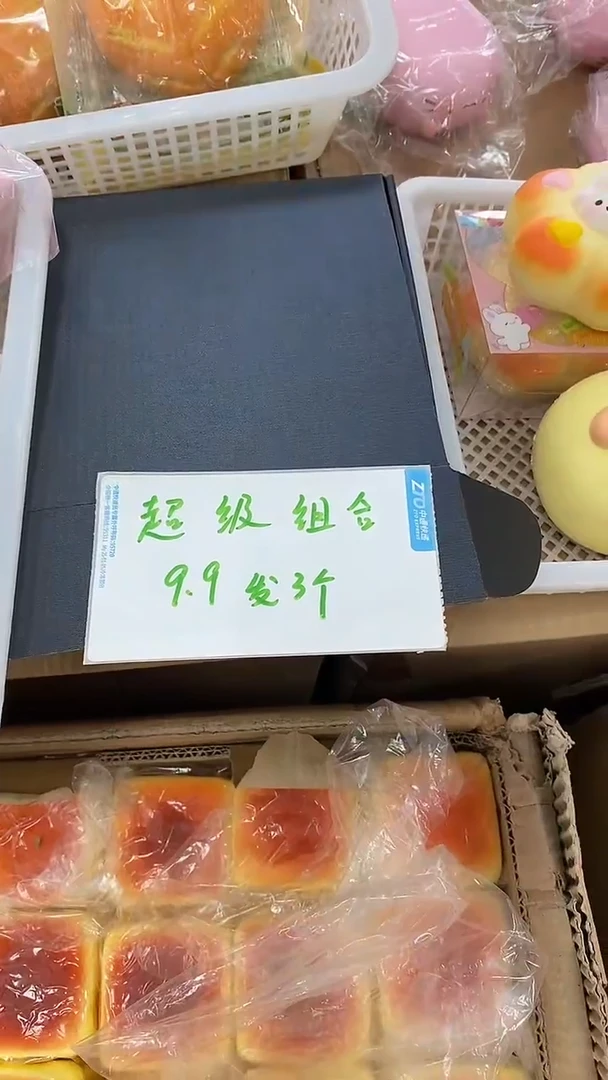 超级组合
9.9发3个
ZTO
中通快递
ZTO EXPRESS